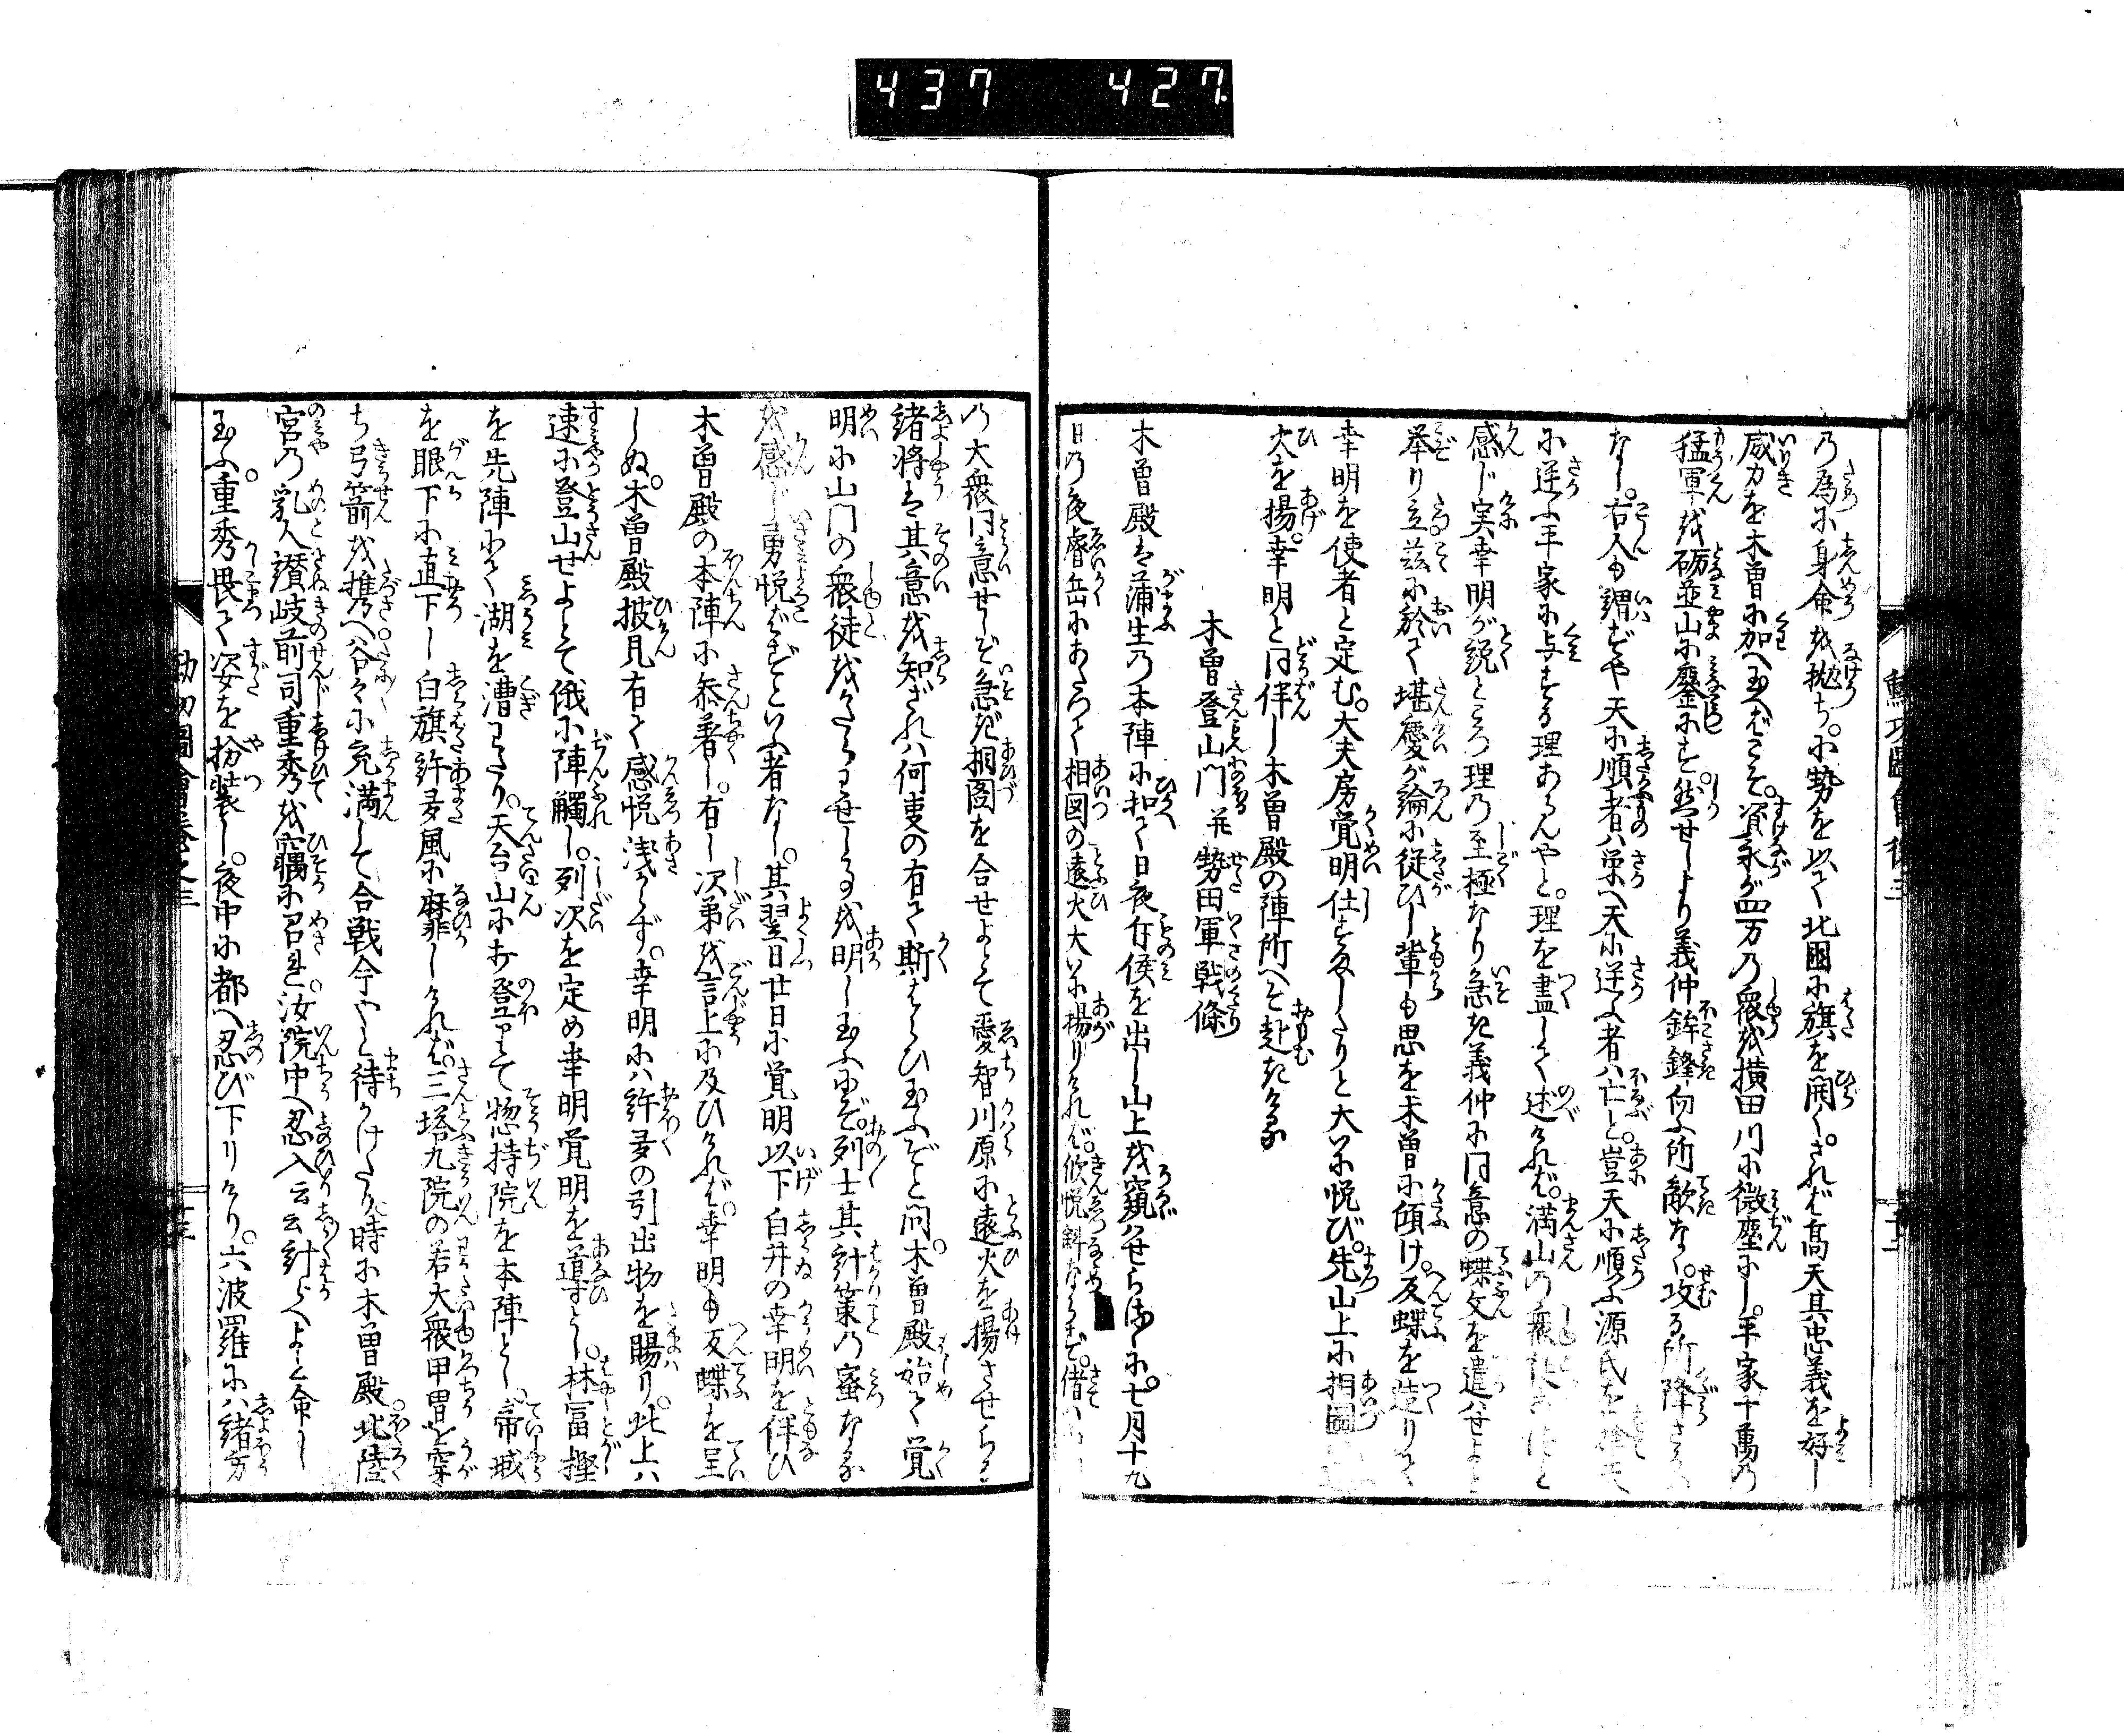 437 427
の為に身命を抛ち。小勢を以て北国に旗を開く。されば高天其忠義を好し
威力を木曽に加へ玉へばこそ。資永が四万の衆を横田川に微塵にし。平家十萬の
猛軍を砺並山に鏖にす。然せしより義仲鉾鋒向ふ所敵なく。攻る所降さる
なし。古人も謂ずや天に順者ハ栄へ天に逆ふ者ハ亡と。豈天に順ふ源氏を捨
に逆ふ平家に与する理あらんやと。理を盡して述ければ。満山の衆徒
感じ実幸明が説ところ理の至極なり急ぎ義仲に同意の蝶文を遣ハせよと
挙り立茲に於て堪慶が論に従ひし輩も思を木曽に傾け。反蝶を造りて
幸明を使者と定む。大夫房覚明仕すましたりと大いに悦び。先山上に相圖
火を揚。幸明と同伴し木曽殿の陣所へぞ赴きける
木曽登山門並勢田軍戦條
木曽殿ハ蒲生の本陣に扣て日夜斥候を出し山上を窺ハせらるゝに。七月十九
日の夜睿岳にあたつて相図の遠火大いに揚りければ。欣悦斜ならず。偖ハ
の大衆同意せしぞ急ぎ相図を合せよとて愛智川原に遠火を揚させらる
緒将ハ其意を知ざれハ何事の有て斯はからひ玉ふぞと問。木曽殿始て覚
明に山門の衆徒をかたらハせしるを明し玉ふにぞ。列士其計策の蜜なる
を感じ勇悦ばずといふ者なし。其翌日廿日に覚明以下白井の幸明を伴ひ
木曽殿の本陣に参着し。有し次第を言上に及びければ。幸明も反蝶を呈
しぬ。木曽殿披見有て感悦浅からず。幸明にハ許多の引出物を賜り。此上ハ
速に登山せよとて俄に陣觸し。列次を定め幸明覚明を道すとし。林冨樫
を先陣にて湖を漕わたり。天台山に打登りて惣持院を本陣とし。帝城
を眼下に直下し白旗許多風に靡しければ。三塔九院の若大衆甲冑を穿
ち弓箭を携へ谷々に充満して合戦今やと待かけたり。時に木曽殿北陸
宮の乳人讃岐前司重秀を竊に召れ。汝院中へ忍入云云計らへよと命じ
玉ふ。重秀畏て姿を扮装し。夜中に都へ忍び下りけり。六波羅にハ緒方